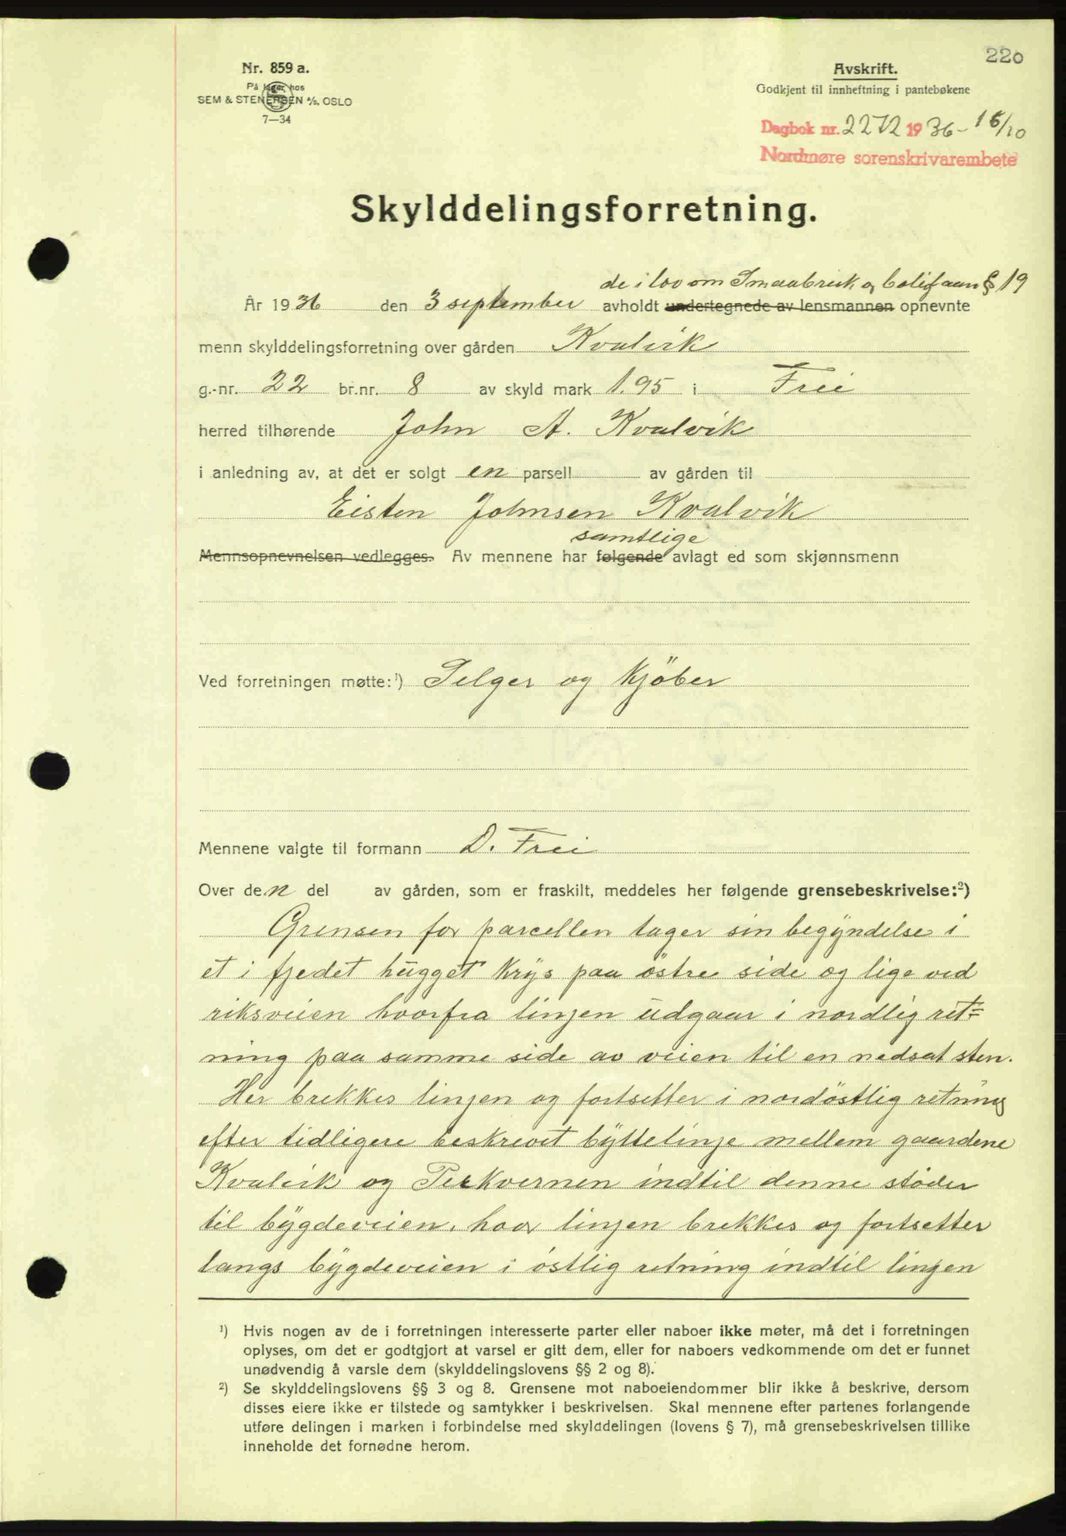 220
Nr. 859 a.
På lager hos
SEM & STENERSEN A/S, OSLO
7—34
Avskrift.
Godkjent til innheftning i pantebøkene
Dagbok nr. 2272 1936 - 16/10
Nordmøre sorenskrivarembete
Skylddelingsforretning.
de i lov om Smaabruk og boligaan § 19
År 1936 den 3 september avholdt undertegnede av lensmannen opnevnte
menn skylddelingsforretning over gården Kvalvik
g.-nr. 22 br.nr. 8 av skyld mark 1.95 i Frei
herred tilhørende John A. Kvalvik
i anledning av, at det er solgt en parsell av gården til
Eisten Johnsen Kvalvik
samtlige
Mennsopnevnelsen vedlegges. Av mennene har følgende avlagt ed som skjønnsmenn
Ved forretningen møtte:¹) Selger og Kjöber
Mennene valgte til formann D. Frei
Over den del av gården, som er fraskilt, meddeles her følgende grensebeskrivelse:²)
Grensen for parcellen tager sin begyndelse i
et i fjedet hugget Krys paa östre side og lige ved
riksveien hvorfra linjen udgaar i nordlig ret=
ning paa samme side av veien til en nedsat sten.
Her brekkes linjen og fortsetter i nordöstlig retning
efter tidligere beskrevet byttelinje mellem gaardene
Kvalvik og Teekvernen indtil denne stöder
til bygdeveien, hvor linjen brekkes og fortsetter
langs bygdeveien i östlig retning indtil linjen
¹) Hvis nogen av de i forretningen interesserte parter eller naboer ikke møter, må det i forretningen
oplyses, om det er godtgjort at varsel er gitt dem, eller for naboers vedkommende om det er funnet
unødvendig å varsle dem (skylddelingslovens §§ 2 og 8).
²) Se skylddelingslovens §§ 3 og 8. Grensene mot naboeiendommer blir ikke å beskrive, dersom
disses eiere ikke er tilstede og samtykker i beskrivelsen. Skal mennene efter partenes forlangende
utføre delingen i marken i forbindelse med skylddelingen (lovens § 7), må grensebeskrivelsen tillike
inneholde det fornødne herom.